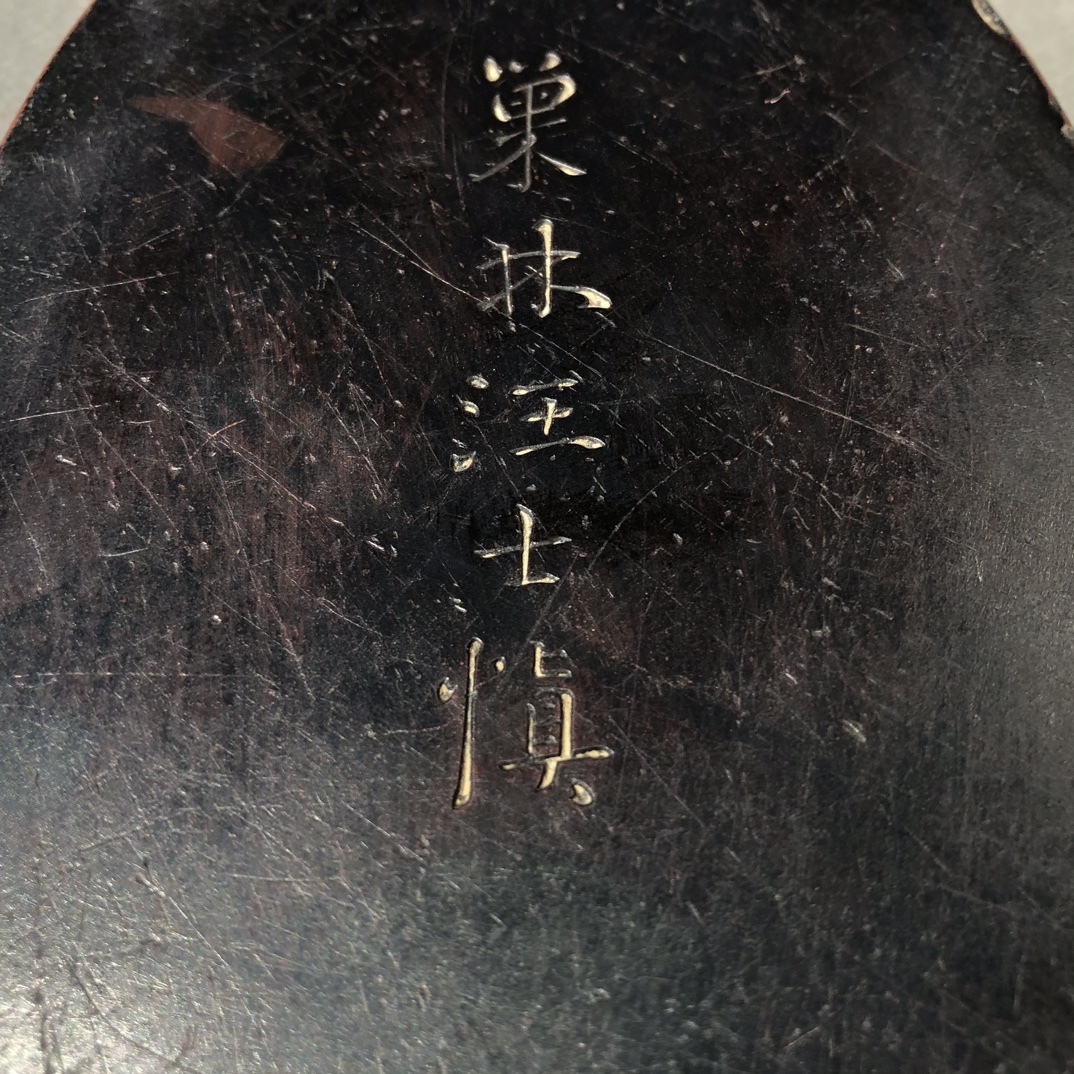 巢林汪士慎